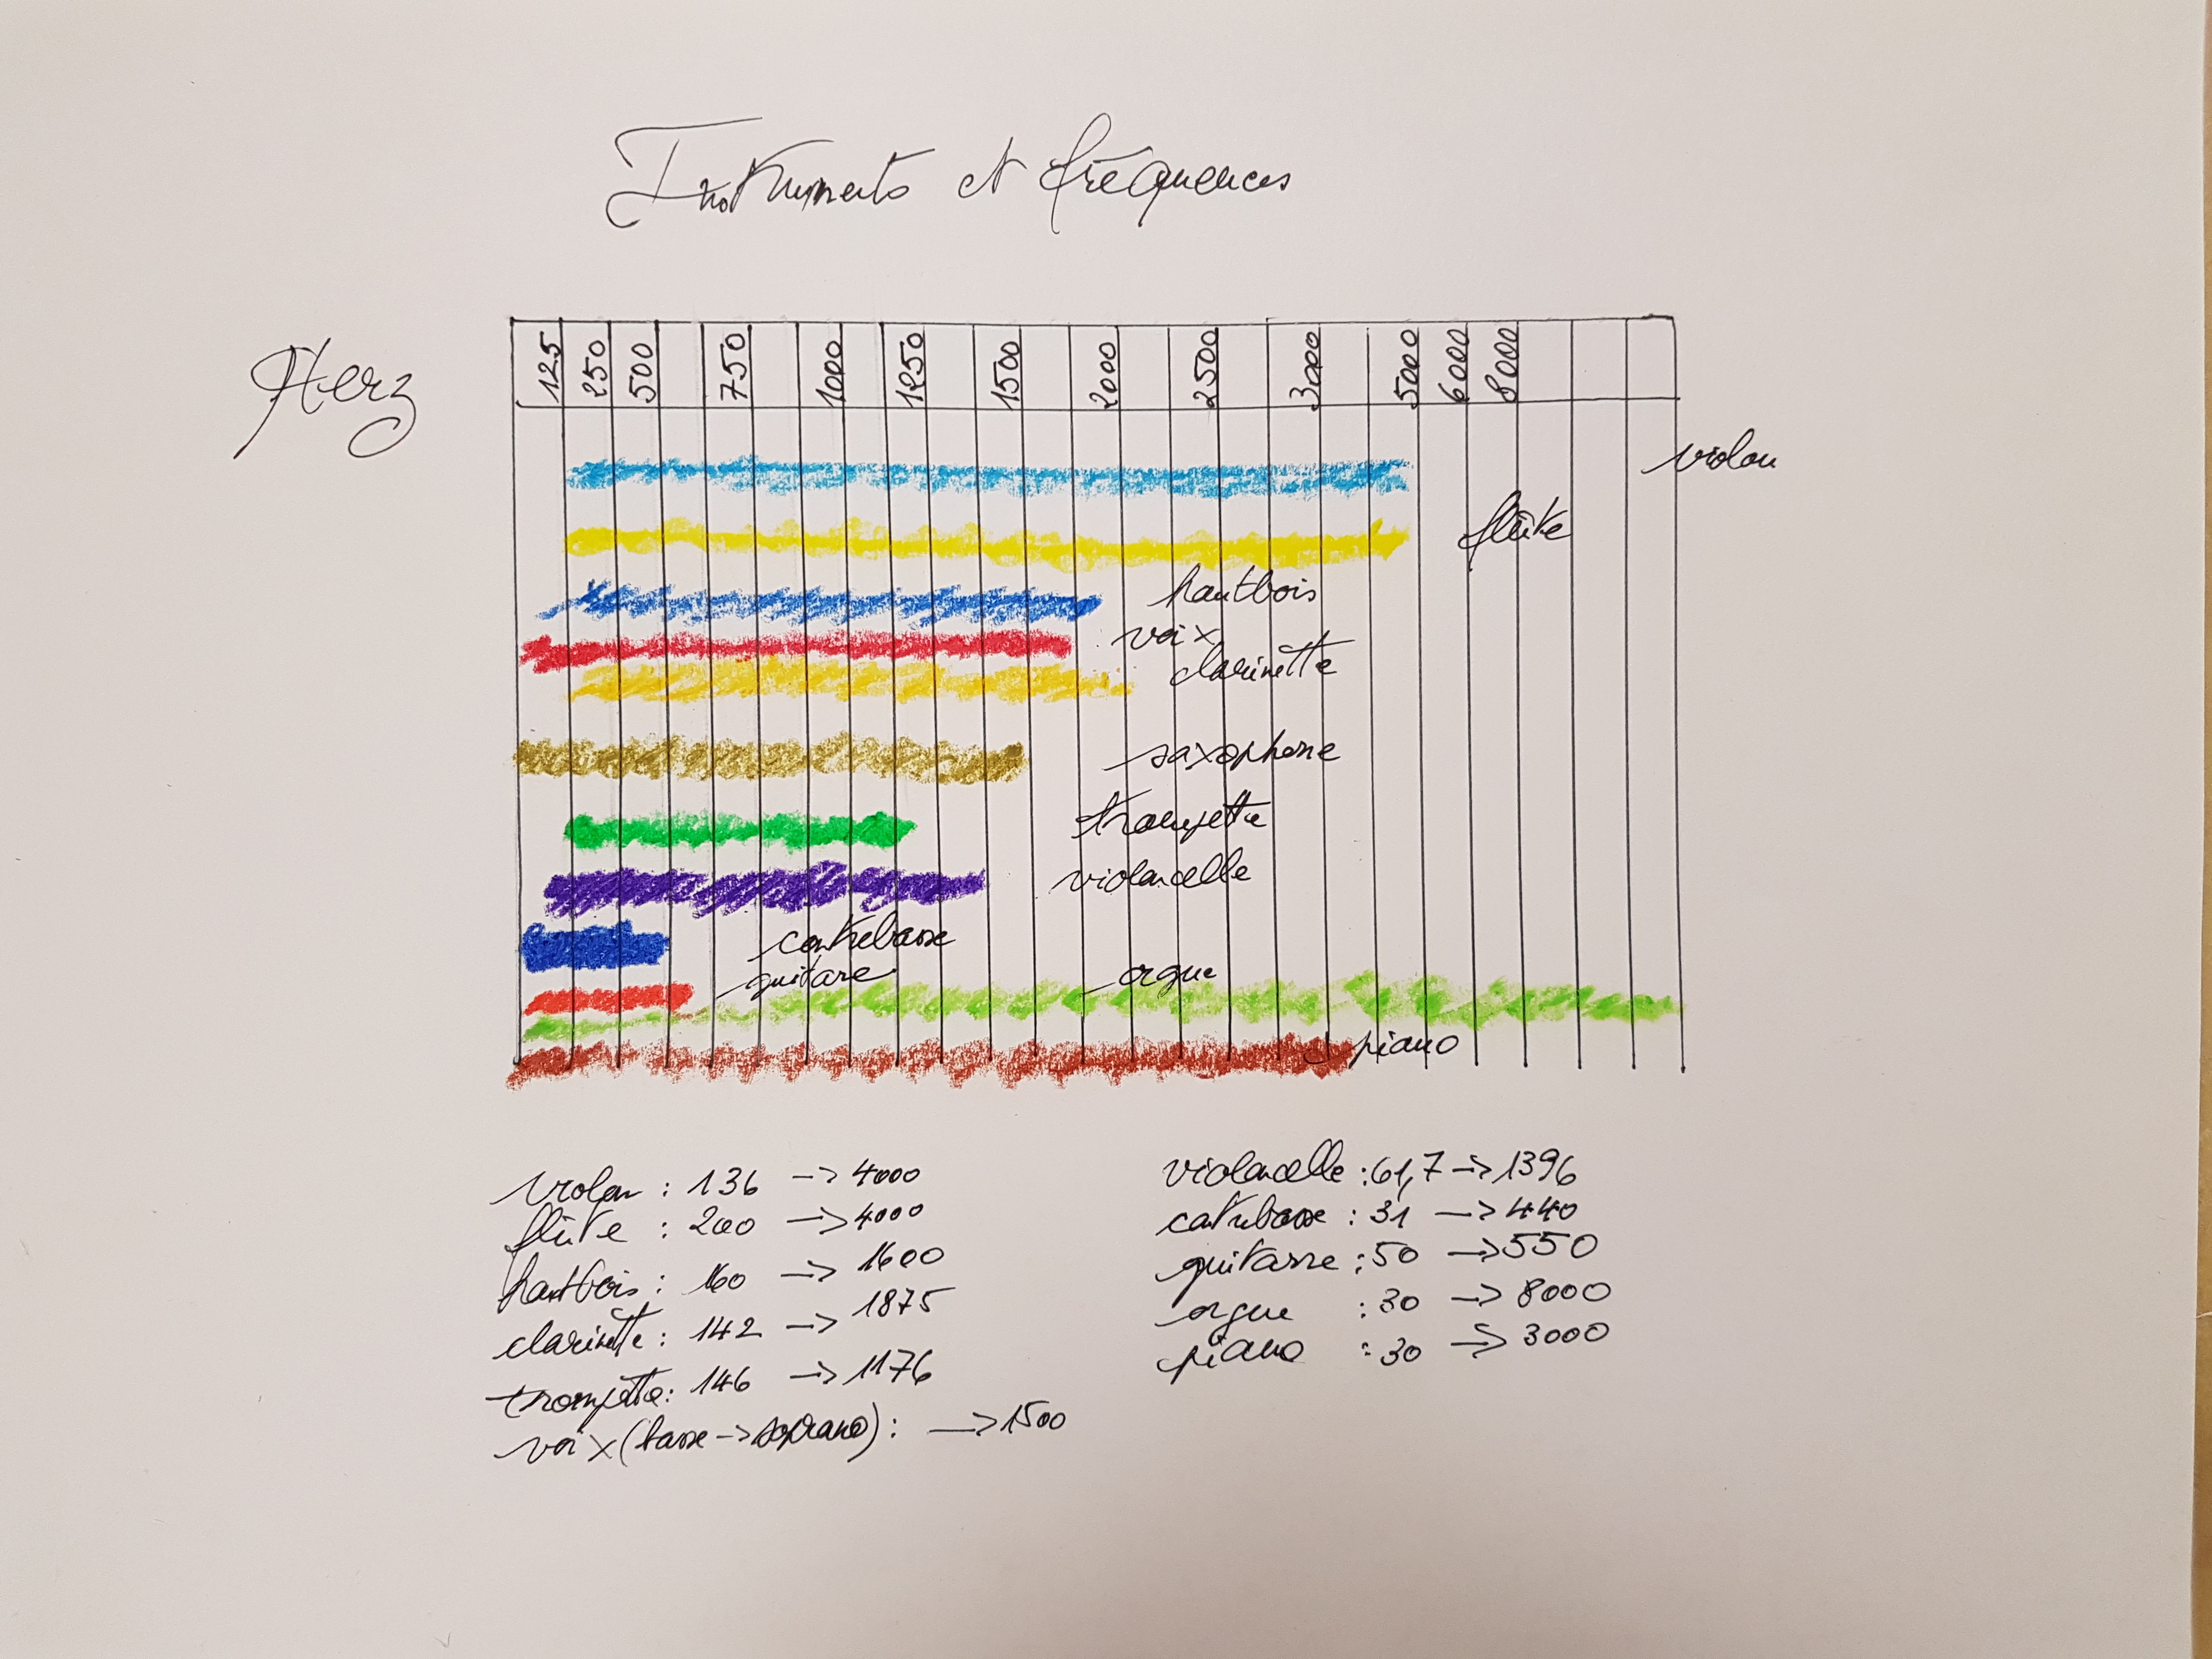 Instruments et fréquences
Herz
125 250 500 750 1000 1250 1500 2000 2500 3000 5000 6000 8000
violon
flûte
hautbois
voix
clarinette
saxophone
trompette
violoncelle
contrebasse
guitare
orgue
piano
violon : 136 -> 4000
flûte : 200 -> 4000
hautbois : 160 -> 1600
clarinette : 142 -> 1875
trompette : 146 -> 1176
voix (basse -> soprano) : -> 1500
violoncelle : 61,7 -> 1396
contrebasse : 31 -> 440
guitare : 50 -> 550
orgue : 30 -> 8000
piano : 30 -> 3000